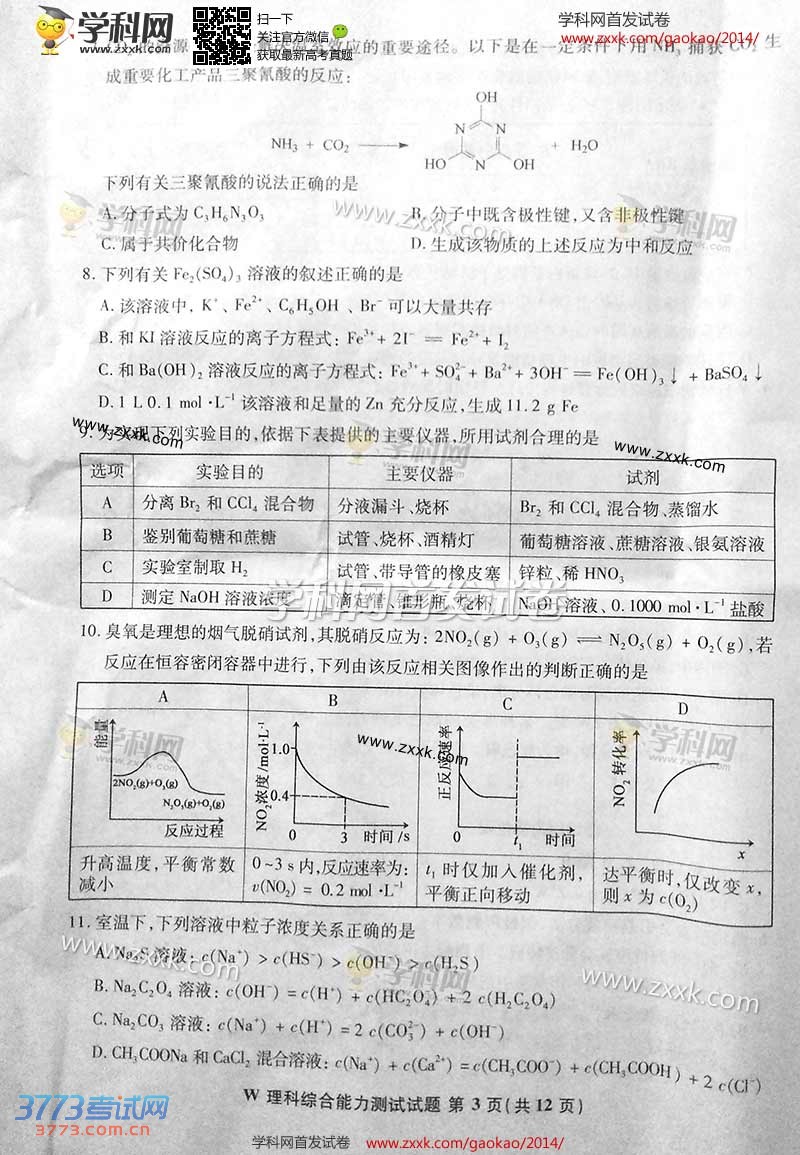 学科网
www.zxxk.com
扫一下
关注官方微信
获取最新高考真题
学科网首发试卷
www.zxxk.com/gaokao/2014/
应的重要途径。以下是在一定条件下用 NH₃ 捕获 CO₂ 生
成重要化工产品三聚氰酸的反应：
NH₃ + CO₂ ⟶ + H₂O
OH
N N
HO N OH
下列有关三聚氰酸的说法正确的是
A. 分子式为 C₃H₆N₃O₃ B. 分子中既含极性键,又含非极性键
C. 属于共价化合物 D. 生成该物质的上述反应为中和反应
8. 下列有关 Fe₂(SO₄)₃ 溶液的叙述正确的是
A. 该溶液中, K⁺、Fe²⁺、C₆H₅OH 、Br⁻ 可以大量共存
B. 和 KI 溶液反应的离子方程式: Fe³⁺ + 2I⁻ ═ Fe²⁺ + I₂
C. 和 Ba(OH)₂ 溶液反应的离子方程式: Fe³⁺ + SO₄²⁻ + Ba²⁺ + 3OH⁻ ═ Fe(OH)₃↓ + BaSO₄↓
D. 1 L 0.1 mol·L⁻¹ 该溶液和足量的 Zn 充分反应,生成 11.2 g Fe
9. 为实现下列实验目的,依据下表提供的主要仪器,所用试剂合理的是
选项 实验目的 主要仪器 试剂
A 分离 Br₂ 和 CCl₄ 混合物 分液漏斗、烧杯 Br₂ 和 CCl₄ 混合物、蒸馏水
B 鉴别葡萄糖和蔗糖 试管、烧杯、酒精灯 葡萄糖溶液、蔗糖溶液、银氨溶液
C 实验室制取 H₂ 试管、带导管的橡皮塞 锌粒、稀 HNO₃
D 测定 NaOH 溶液浓度 滴定管、锥形瓶、烧杯 NaOH 溶液、0.1000 mol·L⁻¹ 盐酸
学科网首发试卷
10. 臭氧是理想的烟气脱硝试剂,其脱硝反应为: 2NO₂(g) + O₃(g) ⇌ N₂O₅(g) + O₂(g),若
反应在恒容密闭容器中进行,下列由该反应相关图像作出的判断正确的是
A B C D
能量
2NO₂(g)+O₃(g)
N₂O₅(g)+O₂(g)
反应过程
NO₂浓度/mol·L⁻¹
1.0
0.4
0 3 时间/s
正反应速率
0 t₁ 时间
NO₂ 转化率
x
升高温度,平衡常数
减小
0~3 s 内,反应速率为:
v(NO₂) = 0.2 mol·L⁻¹
t₁ 时仅加入催化剂,
平衡正向移动
达平衡时,仅改变 x,
则 x 为 c(O₂)
11. 室温下,下列溶液中粒子浓度关系正确的是
A. Na₂S 溶液: c(Na⁺) > c(HS⁻) > c(OH⁻) > c(H₂S)
B. Na₂C₂O₄ 溶液: c(OH⁻) = c(H⁺) + c(HC₂O₄⁻) + 2 c(H₂C₂O₄)
C. Na₂CO₃ 溶液: c(Na⁺) + c(H⁺) = 2 c(CO₃²⁻) + c(OH⁻)
D. CH₃COONa 和 CaCl₂ 混合溶液: c(Na⁺) + c(Ca²⁺) = c(CH₃COO⁻) + c(CH₃COOH) + 2 c(Cl⁻)
W 理科综合能力测试试题 第 3 页(共 12 页)
3773考试网
3773.com.cn
学科网首发试卷 www.zxxk.com/gaokao/2014/